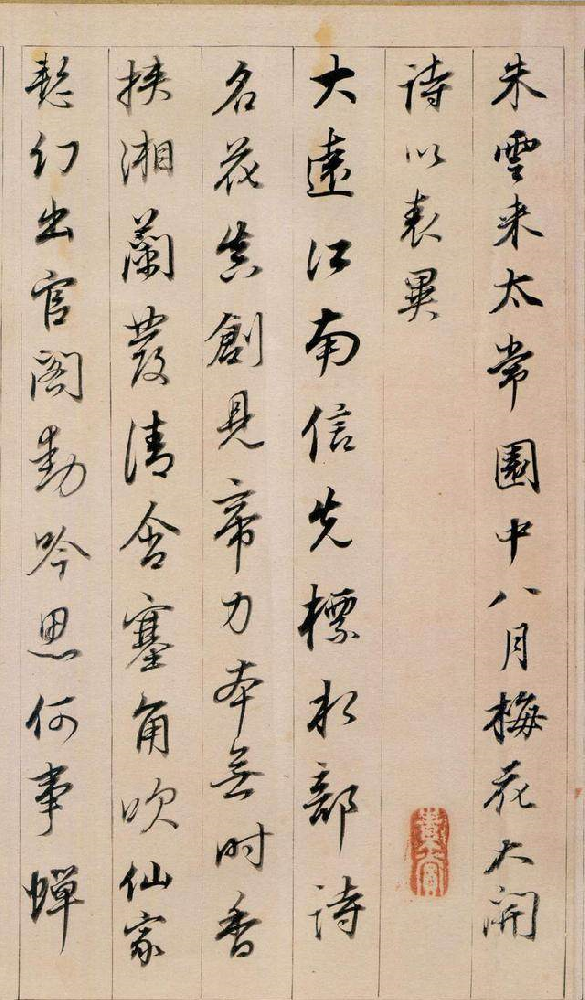 朱雲来太常園中八月梅花大開
詩以表異
大遠江南信先標水部詩
名花真創見帝力本無时香
挟湘蘭發清含塞角吹仙家
幻出官閣動吟思何事蟬